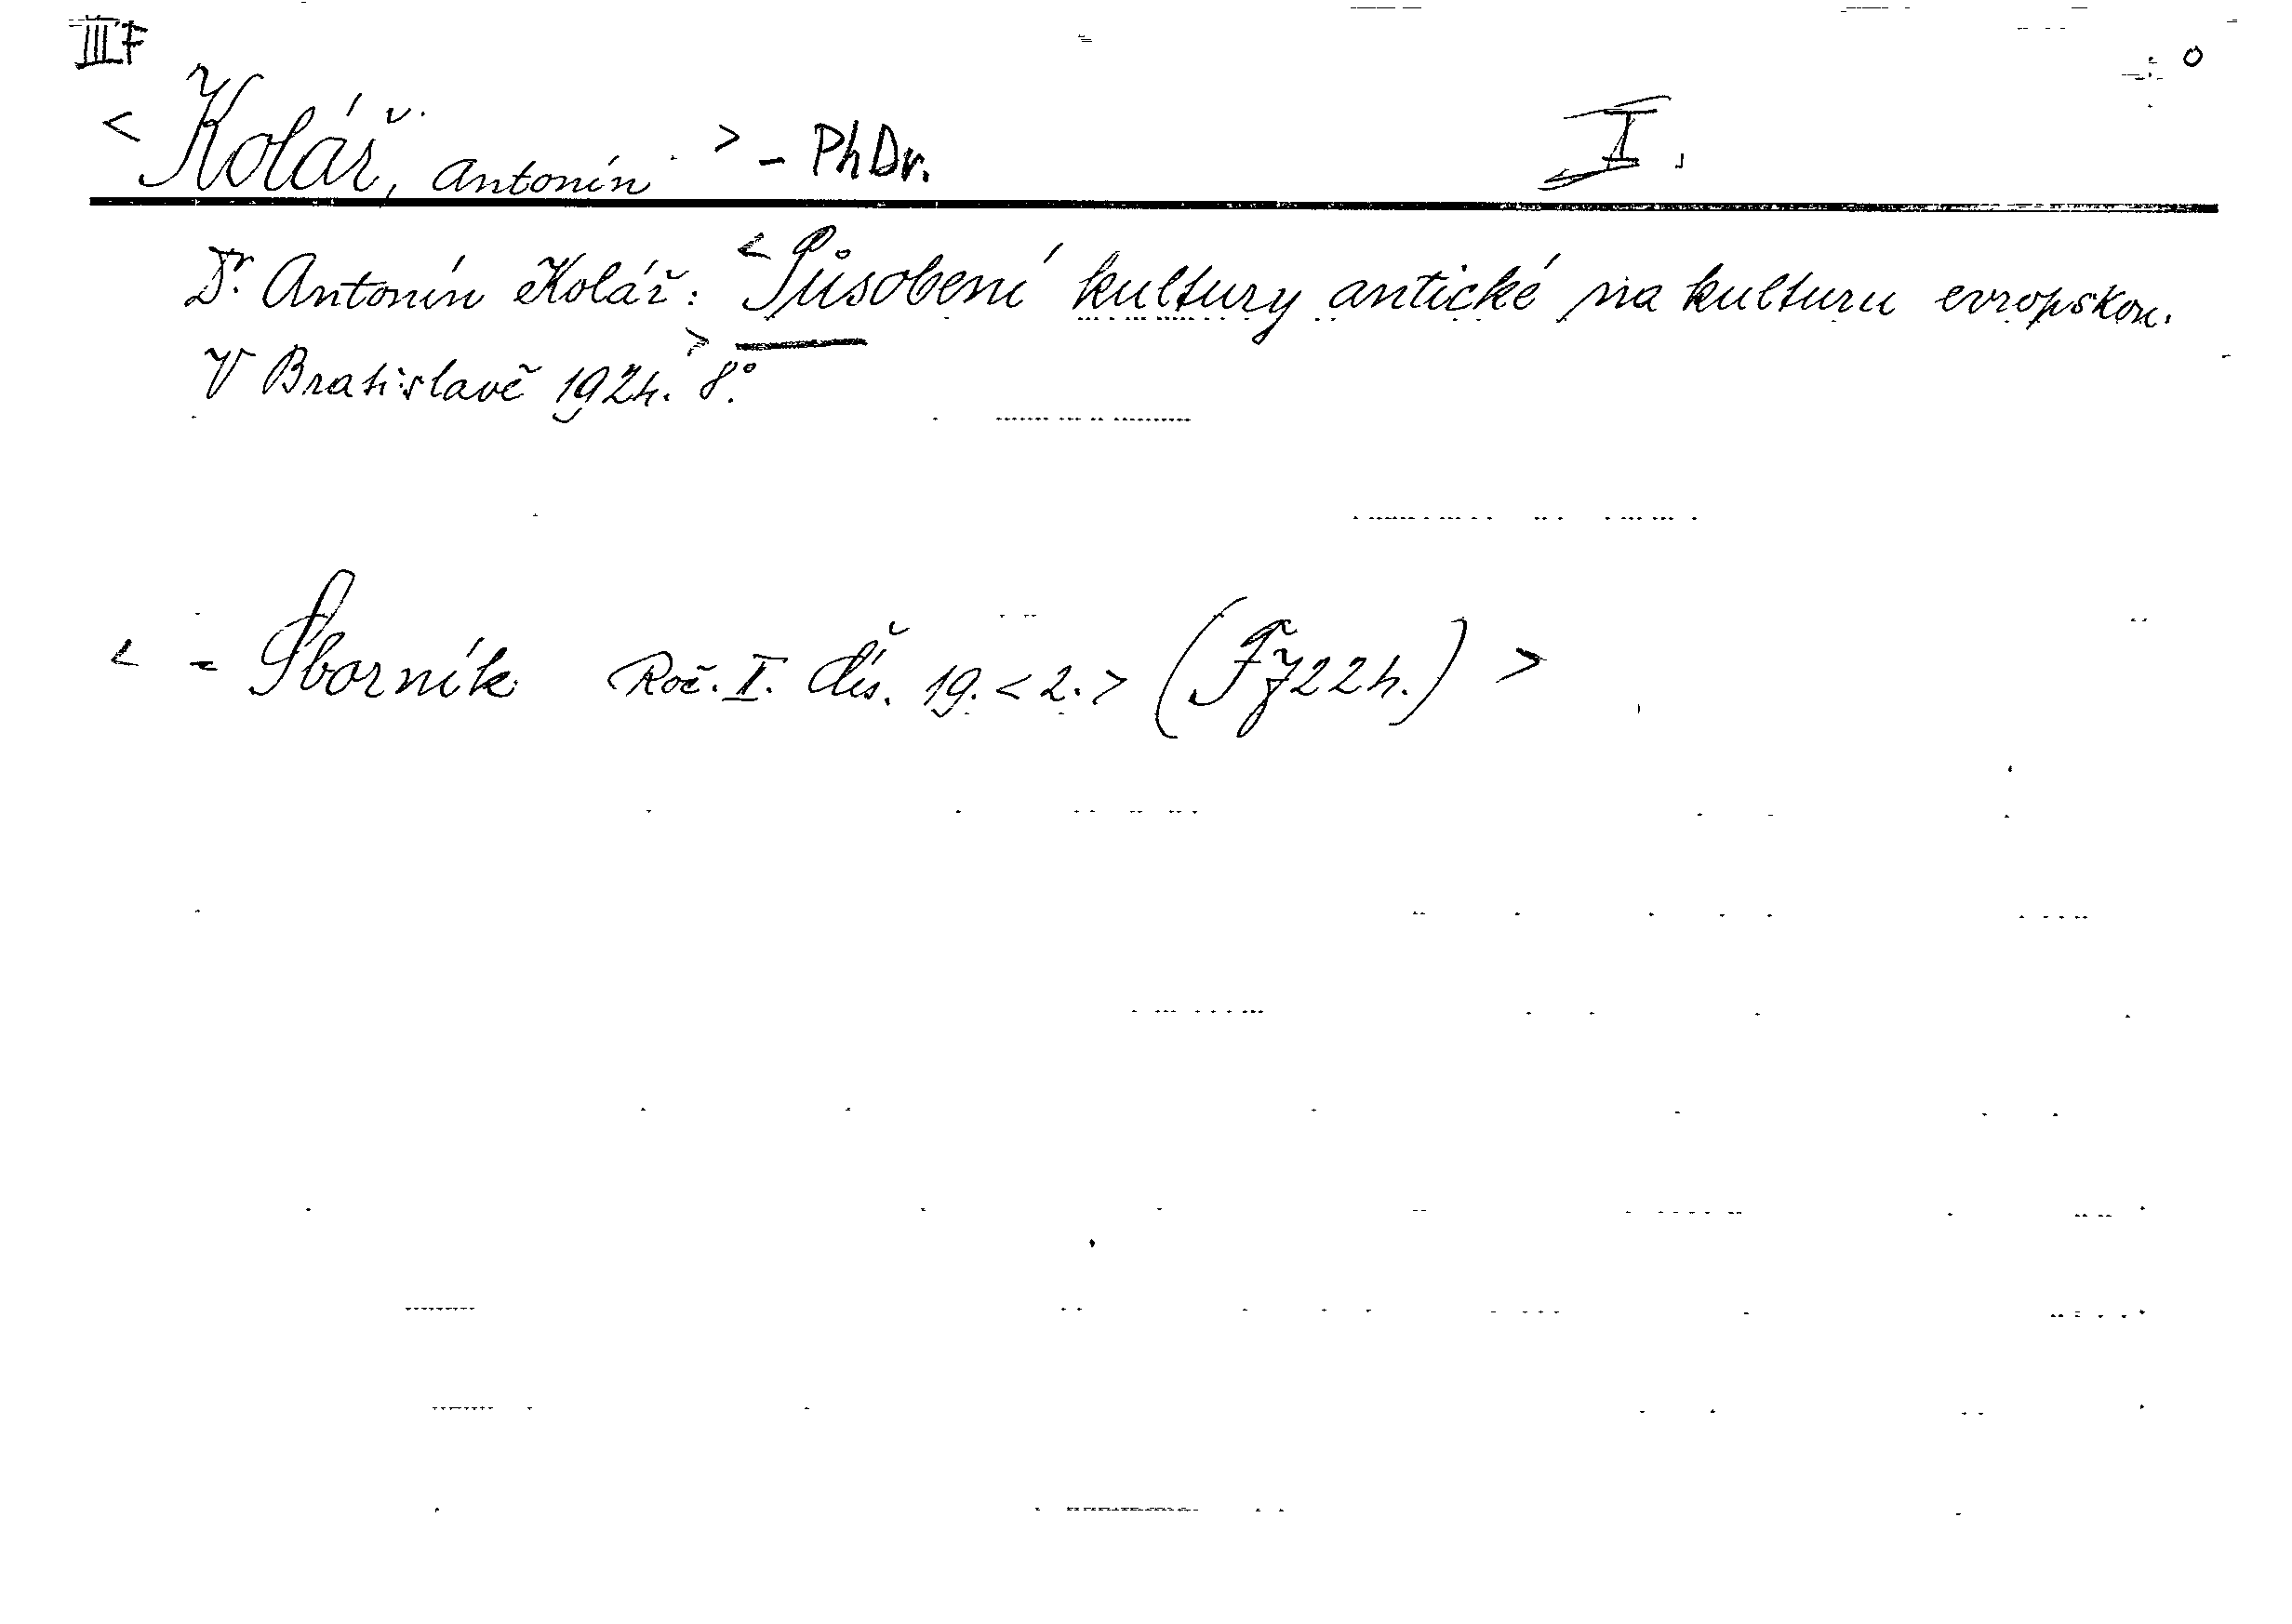 III F
< Kolář, Antonín > - PhDr. I.
Dr. Antonín Kolář: < Působení kultury antické na kulturu evropskou.
V Bratislavě 1924. > 8°.
< = Sborník Roč. II. Čís. 19. < 2. > (Fž 224.) >